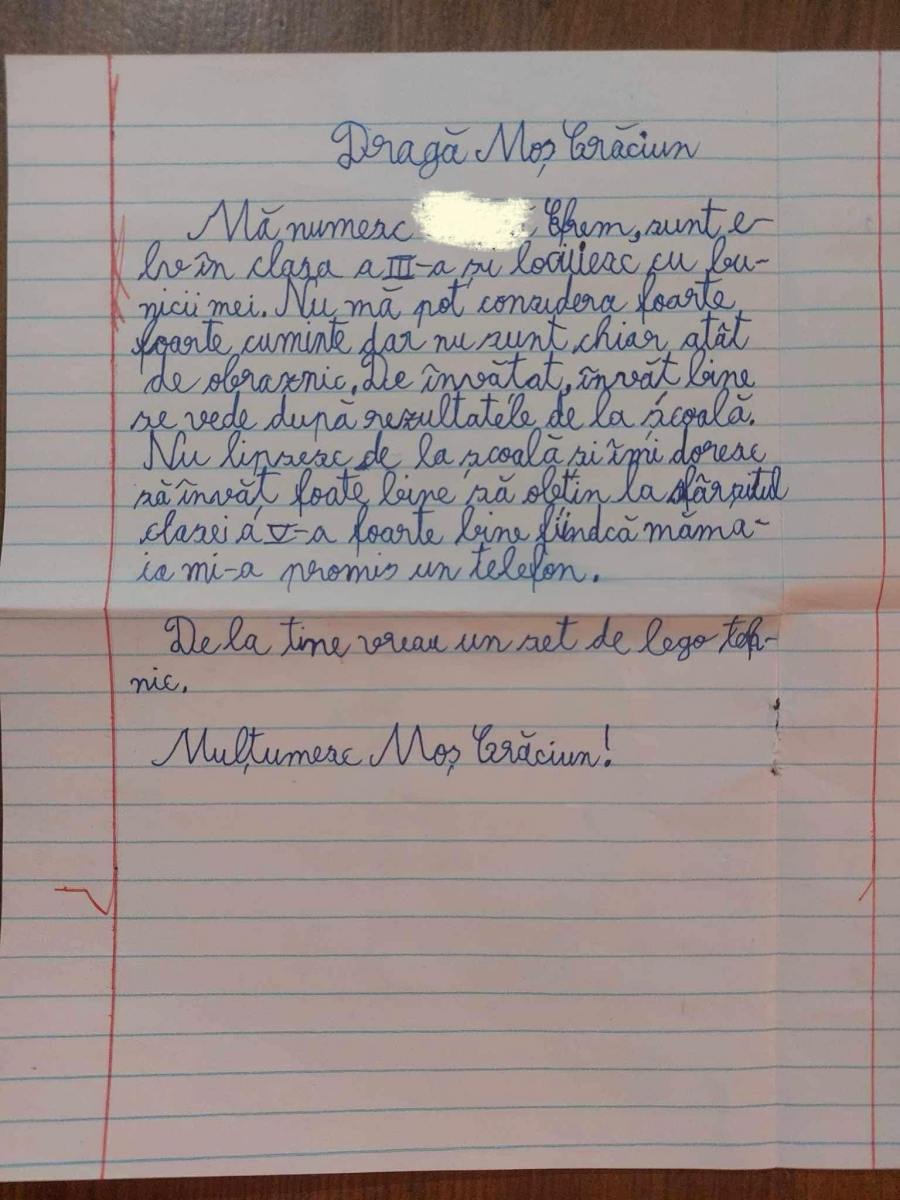 Dragă Moș Crăciun
Mă numesc Efrem, sunt e-
lev în clasa a III-a și locuiesc cu bu-
nicii mei. Nu mă pot considera foarte
foarte cuminte dar nu sunt chiar atât
de obraznic. De învătat, învăt bine
se vede după rezultatele de la școală.
Nu lipsesc de la școală și îmi doresc
să învăt foate bine să obțin la sfârșitul
clasei a V-a foarte bine fiindcă măma-
ia mi-a promis un telefon.
De la tine vreau un set de lego teh-
nic.
Mulțumesc Moș Crăciun!